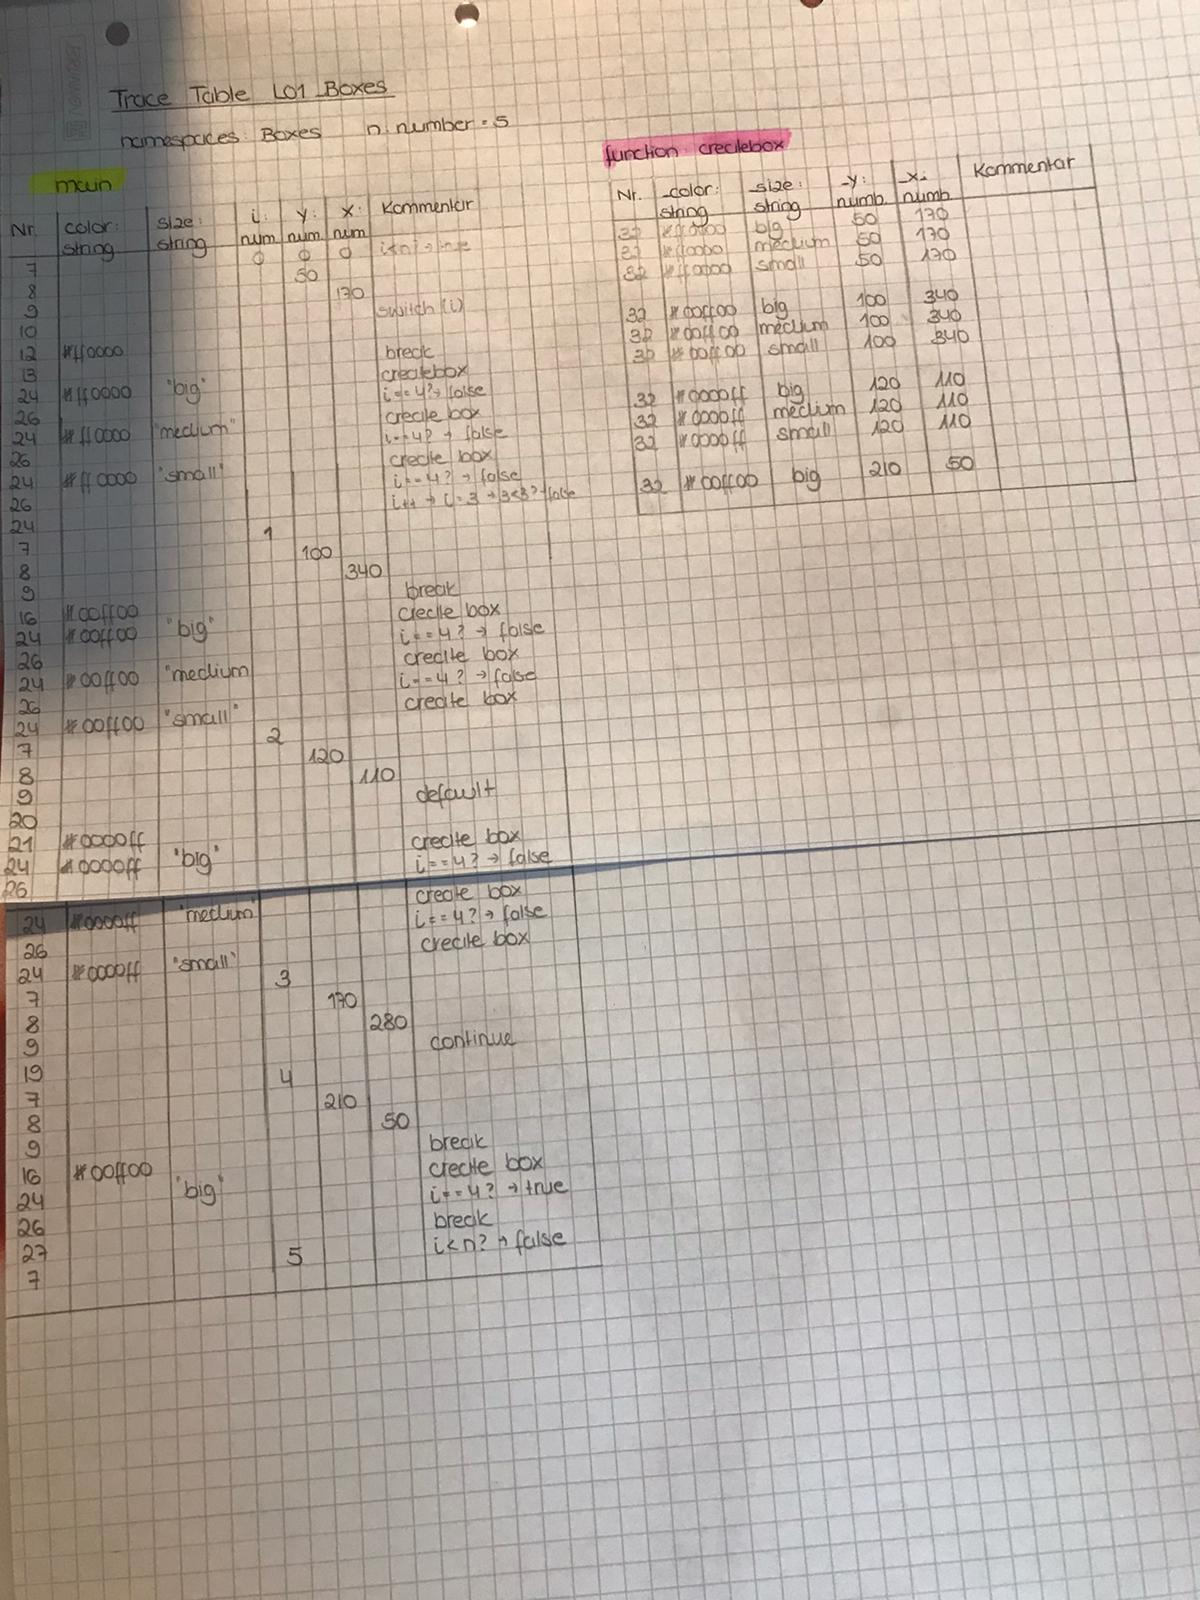 Trace Table L01 Boxes
namespaces: Boxes n: number = 5
main
Nr. color: string size: string i: num y: num x: num Kommentar
0 0 0 i<n? → true
7 50
8 170
9 switch (i)
10
12 #ff0000 break
13 createbox
24 #ff0000 "big" i==4? → false
26 create box
24 #ff0000 "medium" i==4? → false
26 create box
24 #ff0000 "small" i==4? → false
26 i++ → i=3 → 3<3? false
24 1
7 100
8 340
9 break
16 #00ff00 create box
24 #00ff00 "big" i==4? → false
26 create box
24 #00ff00 "medium i==4? → false
26 create box
24 #00ff00 "small"
7 2
8 120
9 110
20 default
21 #0000ff create box
24 #0000ff "big" i==4? → false
26 create box
24 #0000ff "medium" i==4? → false
26 create box
24 #0000ff "small"
7 3
8 170
9 280
19 continue
7 4
8 210
9 50
16 #00ff00 break
24 "big" create box
26 i==4? → true
27 break
7 5 i<n? → false
function createbox
Nr. _color: string _size: string _y: numb _x: numb Kommentar
32 #ff0000 big 50 170
32 #ff0000 medium 50 170
32 #ff0000 small 50 170
32 #00ff00 big 100 340
32 #00ff00 medium 100 340
32 #00ff00 small 100 340
32 #0000ff big 120 110
32 #0000ff medium 120 110
32 #0000ff small 120 110
32 #00ff00 big 210 50